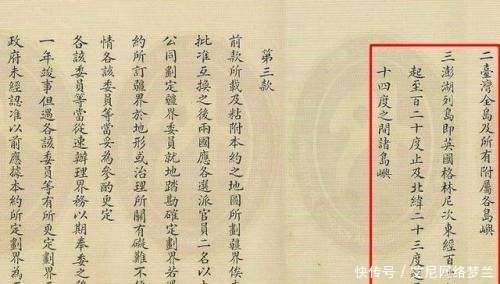 二臺灣全島及所有附屬各島嶼
三澎湖列島即英國格林尼次東經百
起至百二十度止及北緯二十三度
十四度之間諸島嶼
第三款
前款所載及粘附本約之地圖所劃疆界俟
批准互換之後兩國應各選派官員二名以
公同劃定疆界委員就地踏勘確定劃界若
約所訂疆界於地形或治理所關有礙難不
情各該委員等當妥為參酌更定
各該委員等當從速辦理界務以期奉委之
一年竣事但遇各該委員等有所更定劃界
政府未經認准以前應據本約所定劃界為
快傳号 / 艾尼网络梦兰